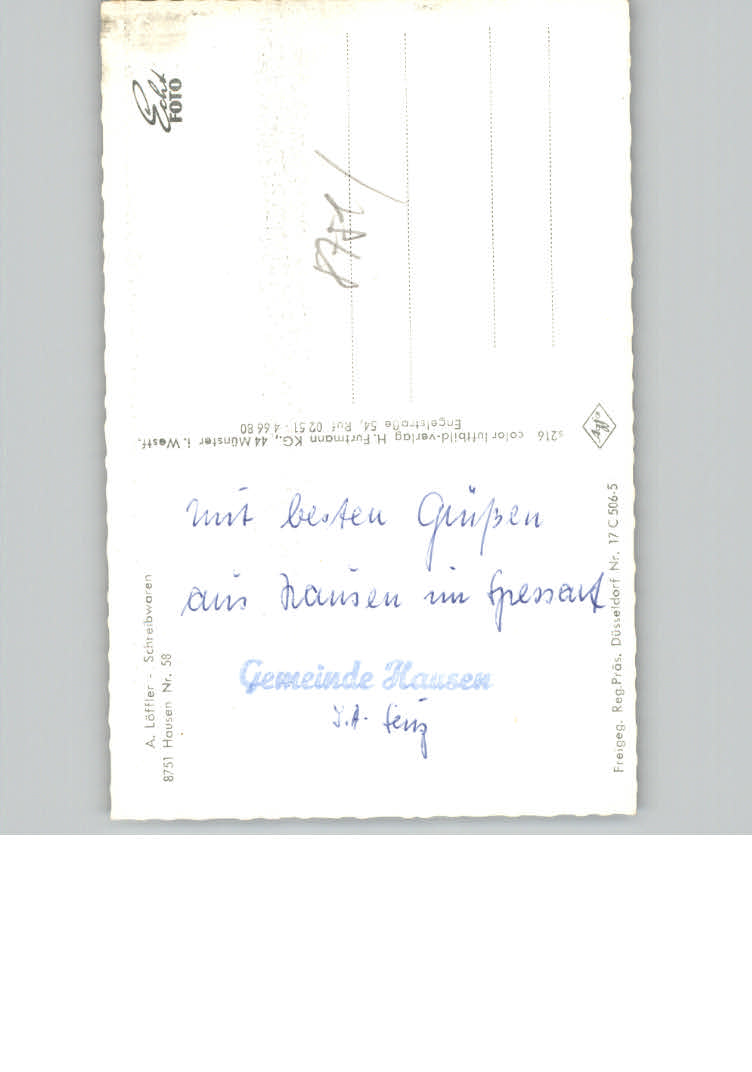 Echt
FOTO
8751
s216 color luftbild-verlag H. Furtmann KG., 44 Münster i. Westf.
Engelstraße 54, Ruf 02 51 - 4 66 80
Agfa
mit besten Grüßen
aus Hausen im Spessart
Gemeinde Hausen
I.A.
A. Löffler - Schreibwaren
8751 Hausen Nr. 58
Freigeg. Reg.Präs. Düsseldorf Nr. 17 C 506-5